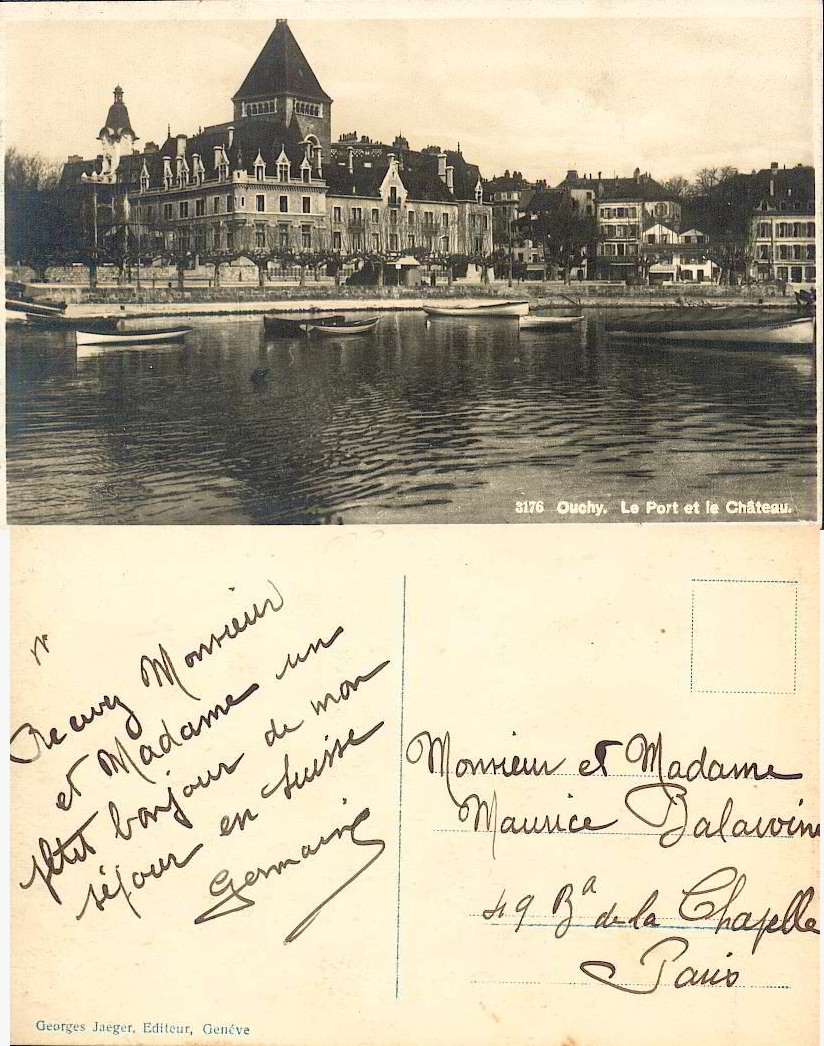 3176 Ouchy. Le Port et le Château.
Recevez Monsieur
et Madame un
petit bonjour de mon
séjour en Suisse
Germaine
Monsieur et Madame
Maurice
49 Bd de la Chapelle
Paris
Georges Jaeger, Editeur, Genève